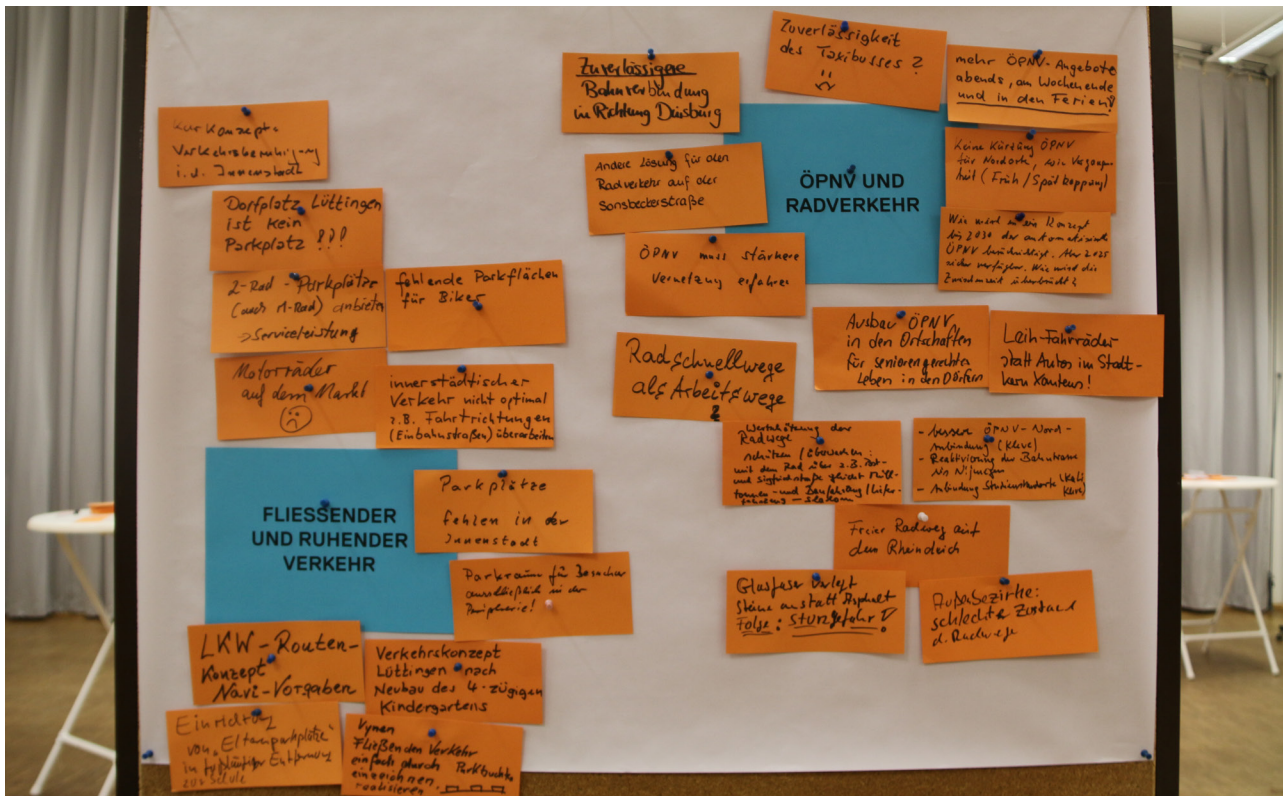 Verkehrsberuhigung
i.d. Innenstadt
Dorfplatz Lüttingen
ist kein
Parkplatz ?!?!
2-Rad-Parkplätze
(auch M-Rad) anbieten
→ Serviceleistung
fehlende Parkflächen
für Biker
Motorräder
auf dem Markt
innerstädtischer
Verkehr nicht optimal
z.B. Fahrtrichtungen
(Einbahnstraßen) überarbeiten
FLIESSENDER
UND RUHENDER
VERKEHR
Parkplätze
fehlen in der
Innenstadt
Parkraum für Besucher
ausschließlich in der
Peripherie!
LKW-Routen-
Konzept
Navi-Vorgaben
Verkehrskonzept
Lüttingen nach
Neubau des 4-zügigen
Kindergartens
Einrichtung
von "Elternparkplätze"
in fußläufiger Entfernung
zur Schule
Vynen
Fließenden Verkehr
einfach durch Parkbuchten
einzeichnen
realisieren.
Zuverlässigere
Bahnverbindung
in Richtung Duisburg
Zuverlässigkeit
des Taxibusses ?
mehr ÖPNV-Angebote
abends, am Wochenende
und in den Ferien!
Andere Lösung für den
Radverkehr auf der
Sonsbeckerstraße
ÖPNV UND
RADVERKEHR
Keine Kürzung ÖPNV
für Nordorte, wie Vergangen-
heit (Früh/Spät Kappung)
Wie wird in ein Konzept
bis 2030 der automatisierte
ÖPNV berücksichtigt. Aber 2025
nicht verfügbar. Wie wird die
Zwischenzeit überbrückt?
ÖPNV muss stärkere
Vernetzung erfahren
Ausbau ÖPNV
in den Ortschaften
für seniorengerechtes
Leben in den Dörfern
Leih-Fahrräder
statt Autos im Stadt-
kern Xantens!
Radschnellwege
als Arbeitswege
?
Wertschätzung der
Radwege
schützen / überwachen:
mit dem Rad über z.B.
und Siegfriedstraße gleicht Müll-
tonnen- und
- Slalom
- bessere ÖPNV-Nord-
Anbindung (Kleve)
- Reaktivierung der Bahntrasse
Nijmegen
- Anbindung Studienstandorte (Kali,
Kleve)
Freier Radweg auf
dem Rheindeich
Glasfaser verlegt
Steine anstatt Asphalt
Folge: Sturzgefahr!
Außenbezirke:
schlechter Zustand
d. Radwege